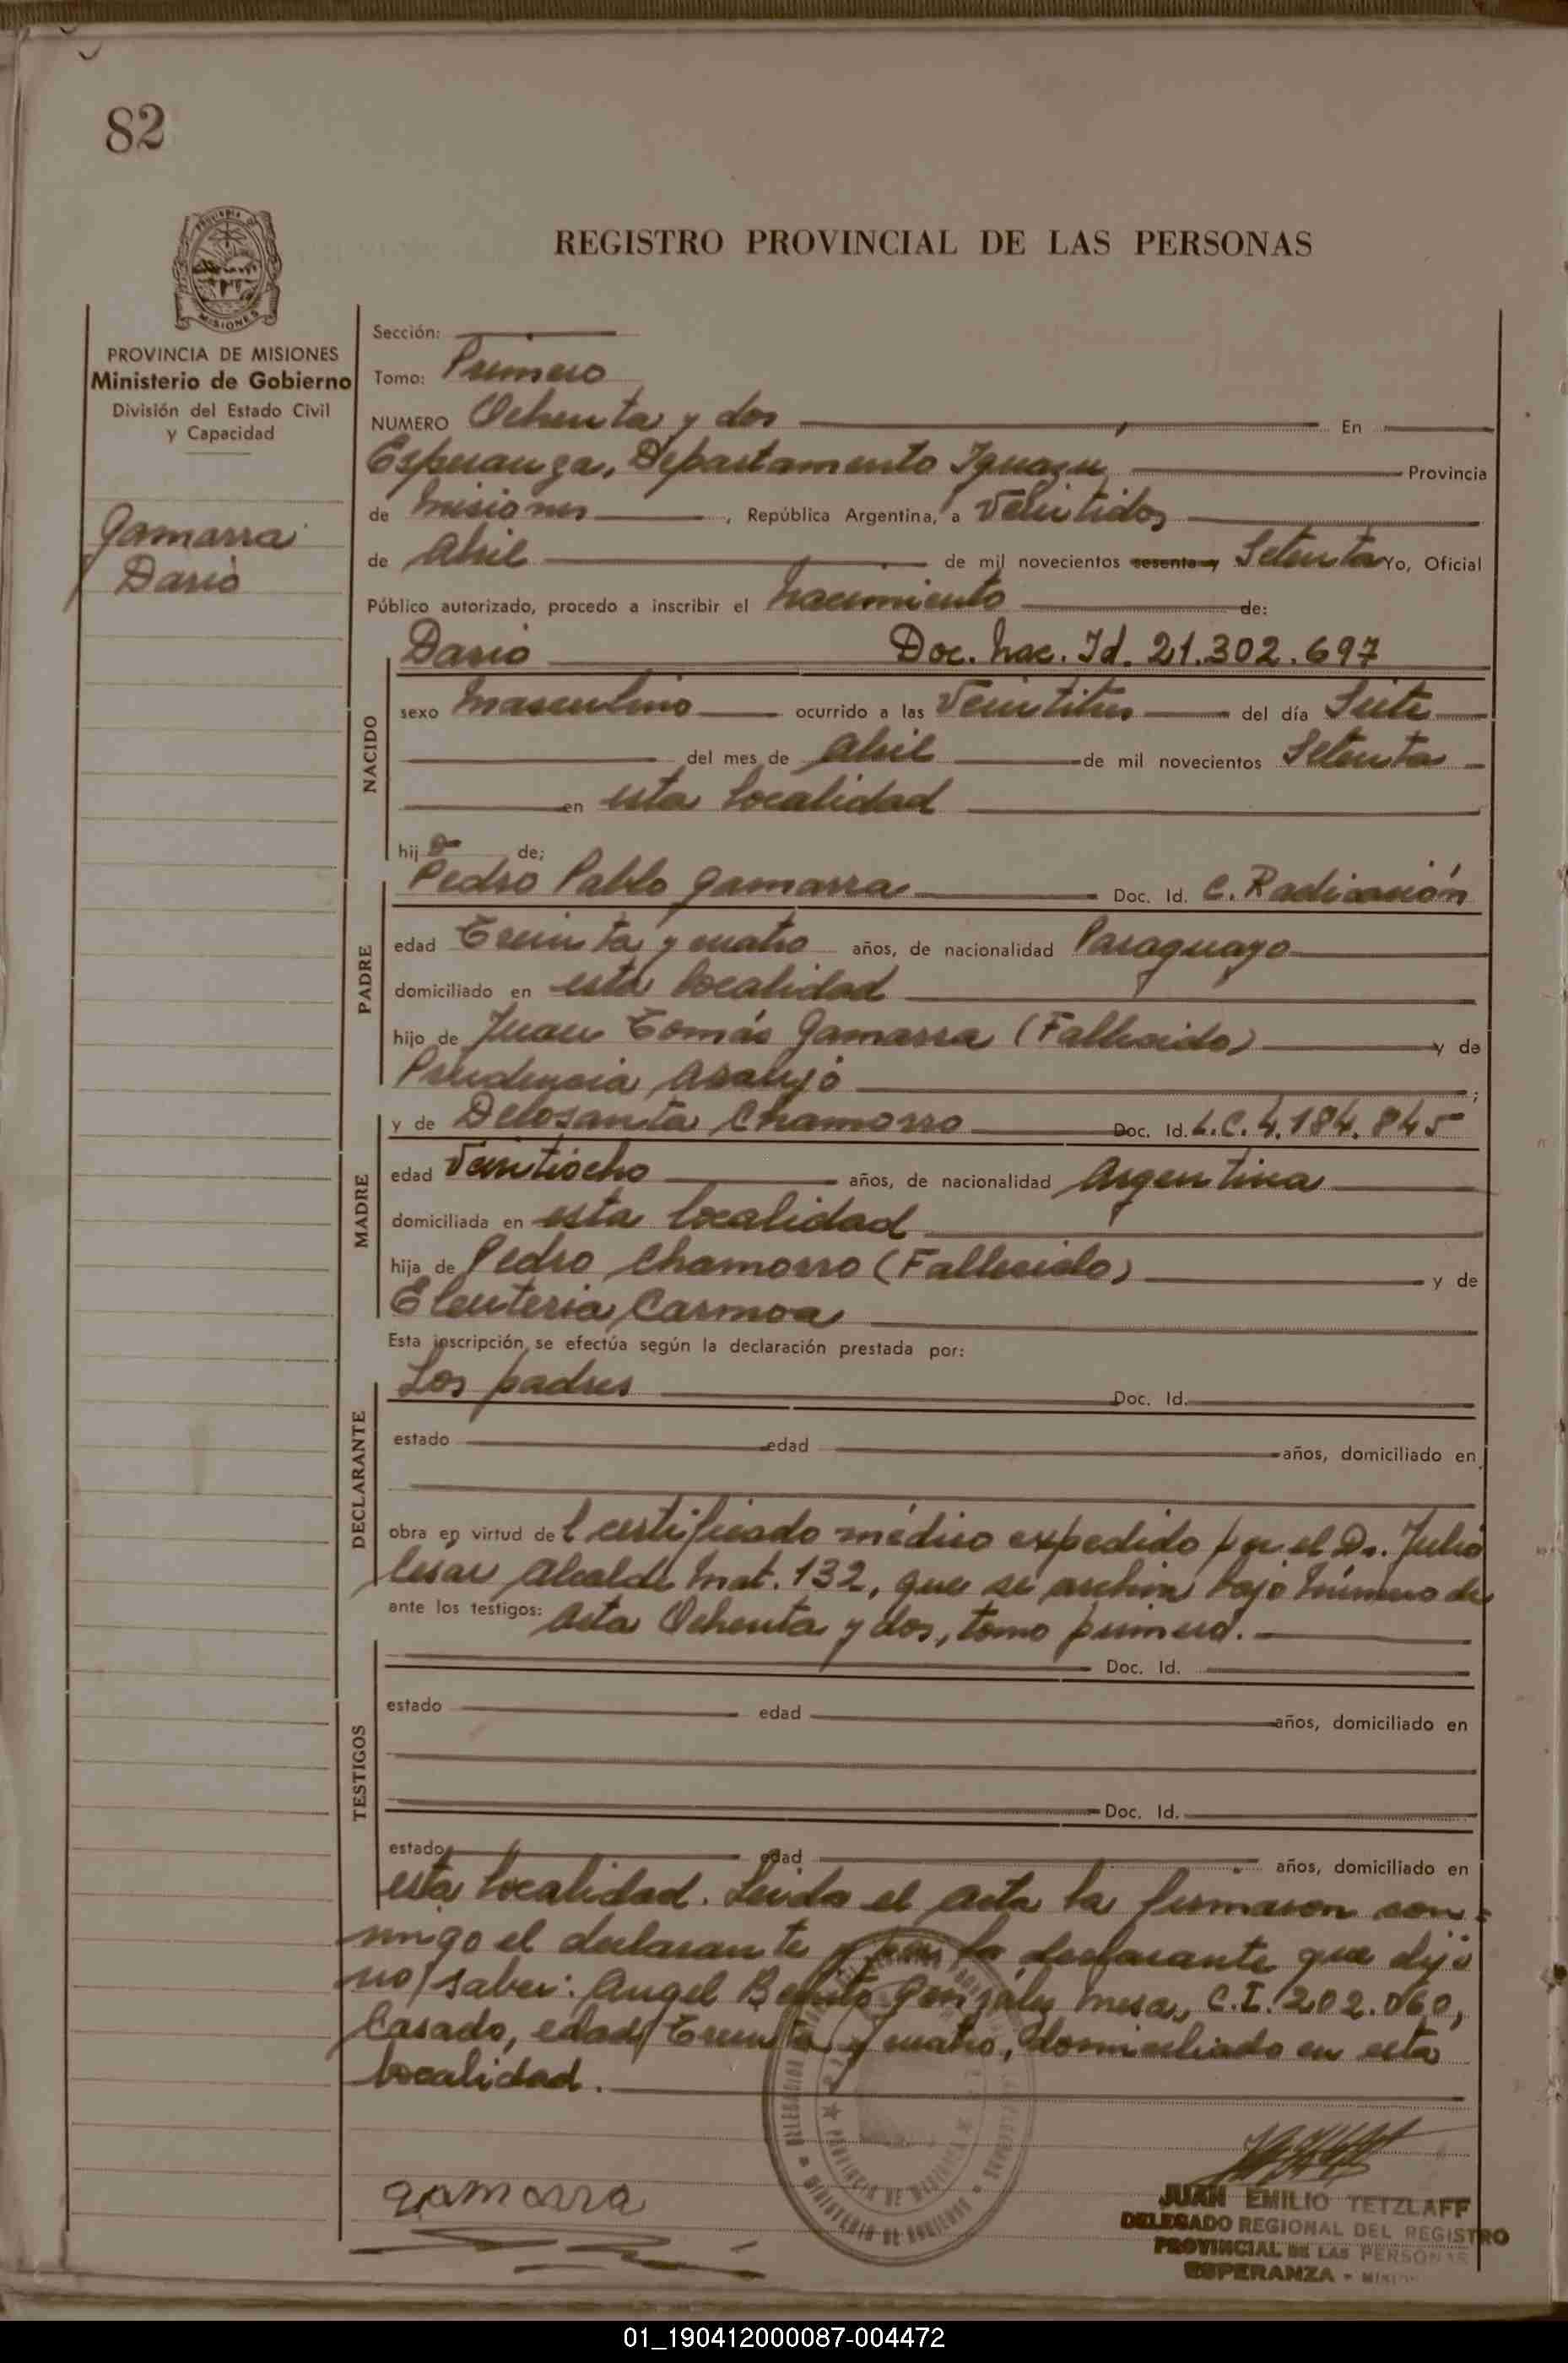 82
REGISTRO PROVINCIAL DE LAS PERSONAS
PROVINCIA DE MISIONES
Ministerio de Gobierno
División del Estado Civil
y Capacidad
Gamarra
Dario
Sección:
Tomo: Primero
NUMERO Ochenta y dos En
Esperanza, Departamento Iguazu Provincia
de Misiones, República Argentina, a Veintidos
de Abril de mil novecientos sesenta y Setenta Yo, Oficial
Público autorizado, procedo a inscribir el nacimiento de:
NACIDO
Dario Doc. Nac. Id. 21.302.697
sexo Masculino ocurrido a las Veintitres del día Siete
del mes de Abril de mil novecientos Setenta
en esta localidad
hijo de:
PADRE
Pedro Pablo Gamarra Doc. Id. C. Radicación
edad Treinta y cuatro años, de nacionalidad Paraguayo
domiciliado en esta localidad
hijo de Juan Tomás Gamarra (Fallecido) y de
Prudencia Araujo ;
MADRE
y de Delosanta Chamorro Doc. Id. L.C. 4.184.845
edad Veintiocho años, de nacionalidad Argentina
domiciliada en esta localidad
hija de Pedro Chamorro (Fallecido) y de
Eleuteria Carmoa
Esta inscripción se efectúa según la declaración prestada por:
DECLARANTE
Los padres Doc. Id.
estado edad años, domiciliado en
obra en virtud del certificado médico expedido por el Dr. Julio
Cesar Alcalde Mat. 132, que se archiva bajo número de
ante los testigos: Acta Ochenta y dos, tomo primero.
TESTIGOS
Doc. Id.
estado edad años, domiciliado en
Doc. Id.
estado edad años, domiciliado en
esta localidad. Leida el acta la firmaron con=
migo el declarante y por la declarante que dijo
no saber: Angel Benito Gonzalez Mesa, C.I. 202.060,
Casado, edad Treinta y cuatro, domiciliado en esta
localidad.
gamarra
JUAN EMILIO TETZLAFF
DELEGADO REGIONAL DEL REGISTRO
PROVINCIAL DE LAS PERSONAS
ESPERANZA - MISIONES
01_190412000087-004472